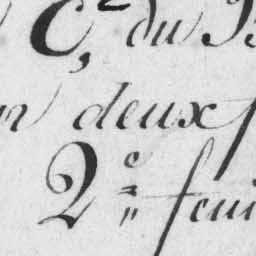 C, du
deux
2e feui